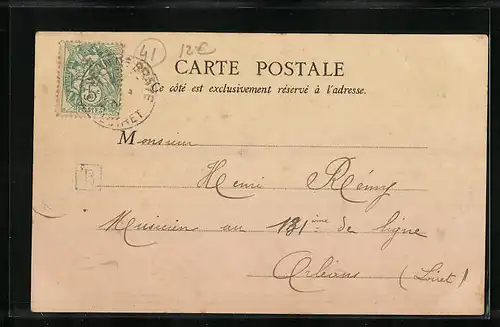 41 12€
CARTE POSTALE
Ce côté est exclusivement réservé à l'adresse.
5
POSTES
Monsieur
B
Henri Rémy
Musicien au 131ième de ligne
Orléans (Loiret)